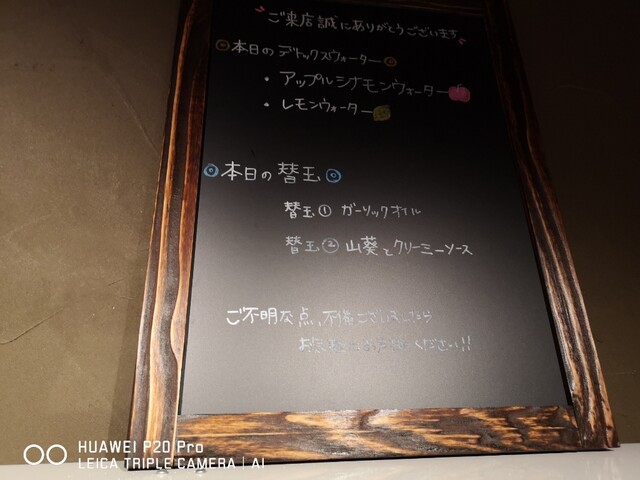 ご来店誠にありがとうございます
本日のデトックスウォーター
・アップルシナモンウォーター
・レモンウォーター
本日の替玉
替玉① ガーリックオイル
替玉② 山葵とクリーミーソース
ご不明な点、不備ございましたら
ください!!
HUAWEI P20 Pro
LEICA TRIPLE CAMERA | AI